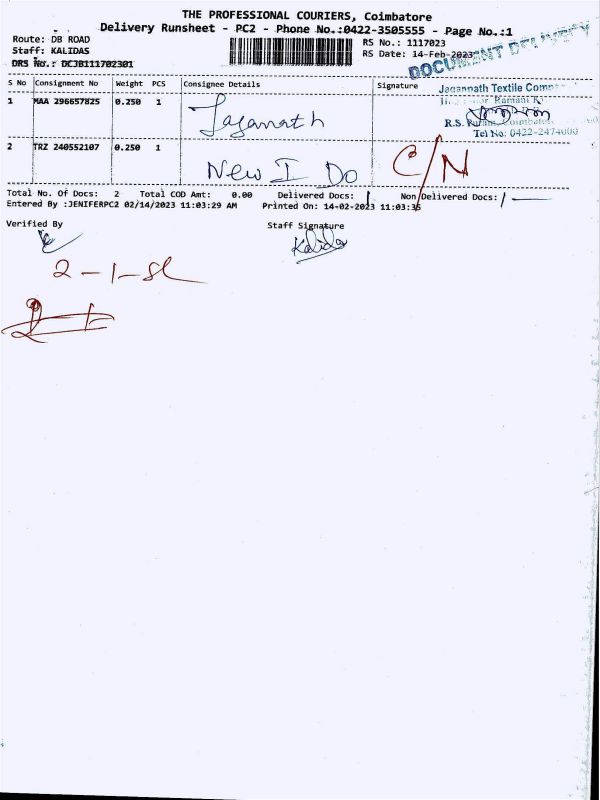 THE PROFESSIONAL COURIERS, Coimbatore
Delivery Runsheet - PC2 - Phone No.:0422-3505555 - Page No.:1
Route: DB ROAD
Staff: KALIDAS
DRS No.: DCJB111702301
RS No.: 1117023
RS Date: 14-Feb-2023
DOCUMENT DELIVERY
S No Consignment No Weight PCS Consignee Details Signature
Jagannath Textile
1 MAA 296657825 0.250 1 Jaganath
Ramani
R.S. Puram, Coimbatore
Tel No: 0422-2474000
2 TRZ 240552107 0.250 1 New I Do C/N
Total No. Of Docs: 2 Total COD Amt: 0.00 Delivered Docs: 1 Non Delivered Docs: 1
Entered By :JENIFERPC2 02/14/2023 11:03:29 AM Printed On: 14-02-2023 11:03:35
Verified By Staff Signature
Kalidas
2-1-Sl